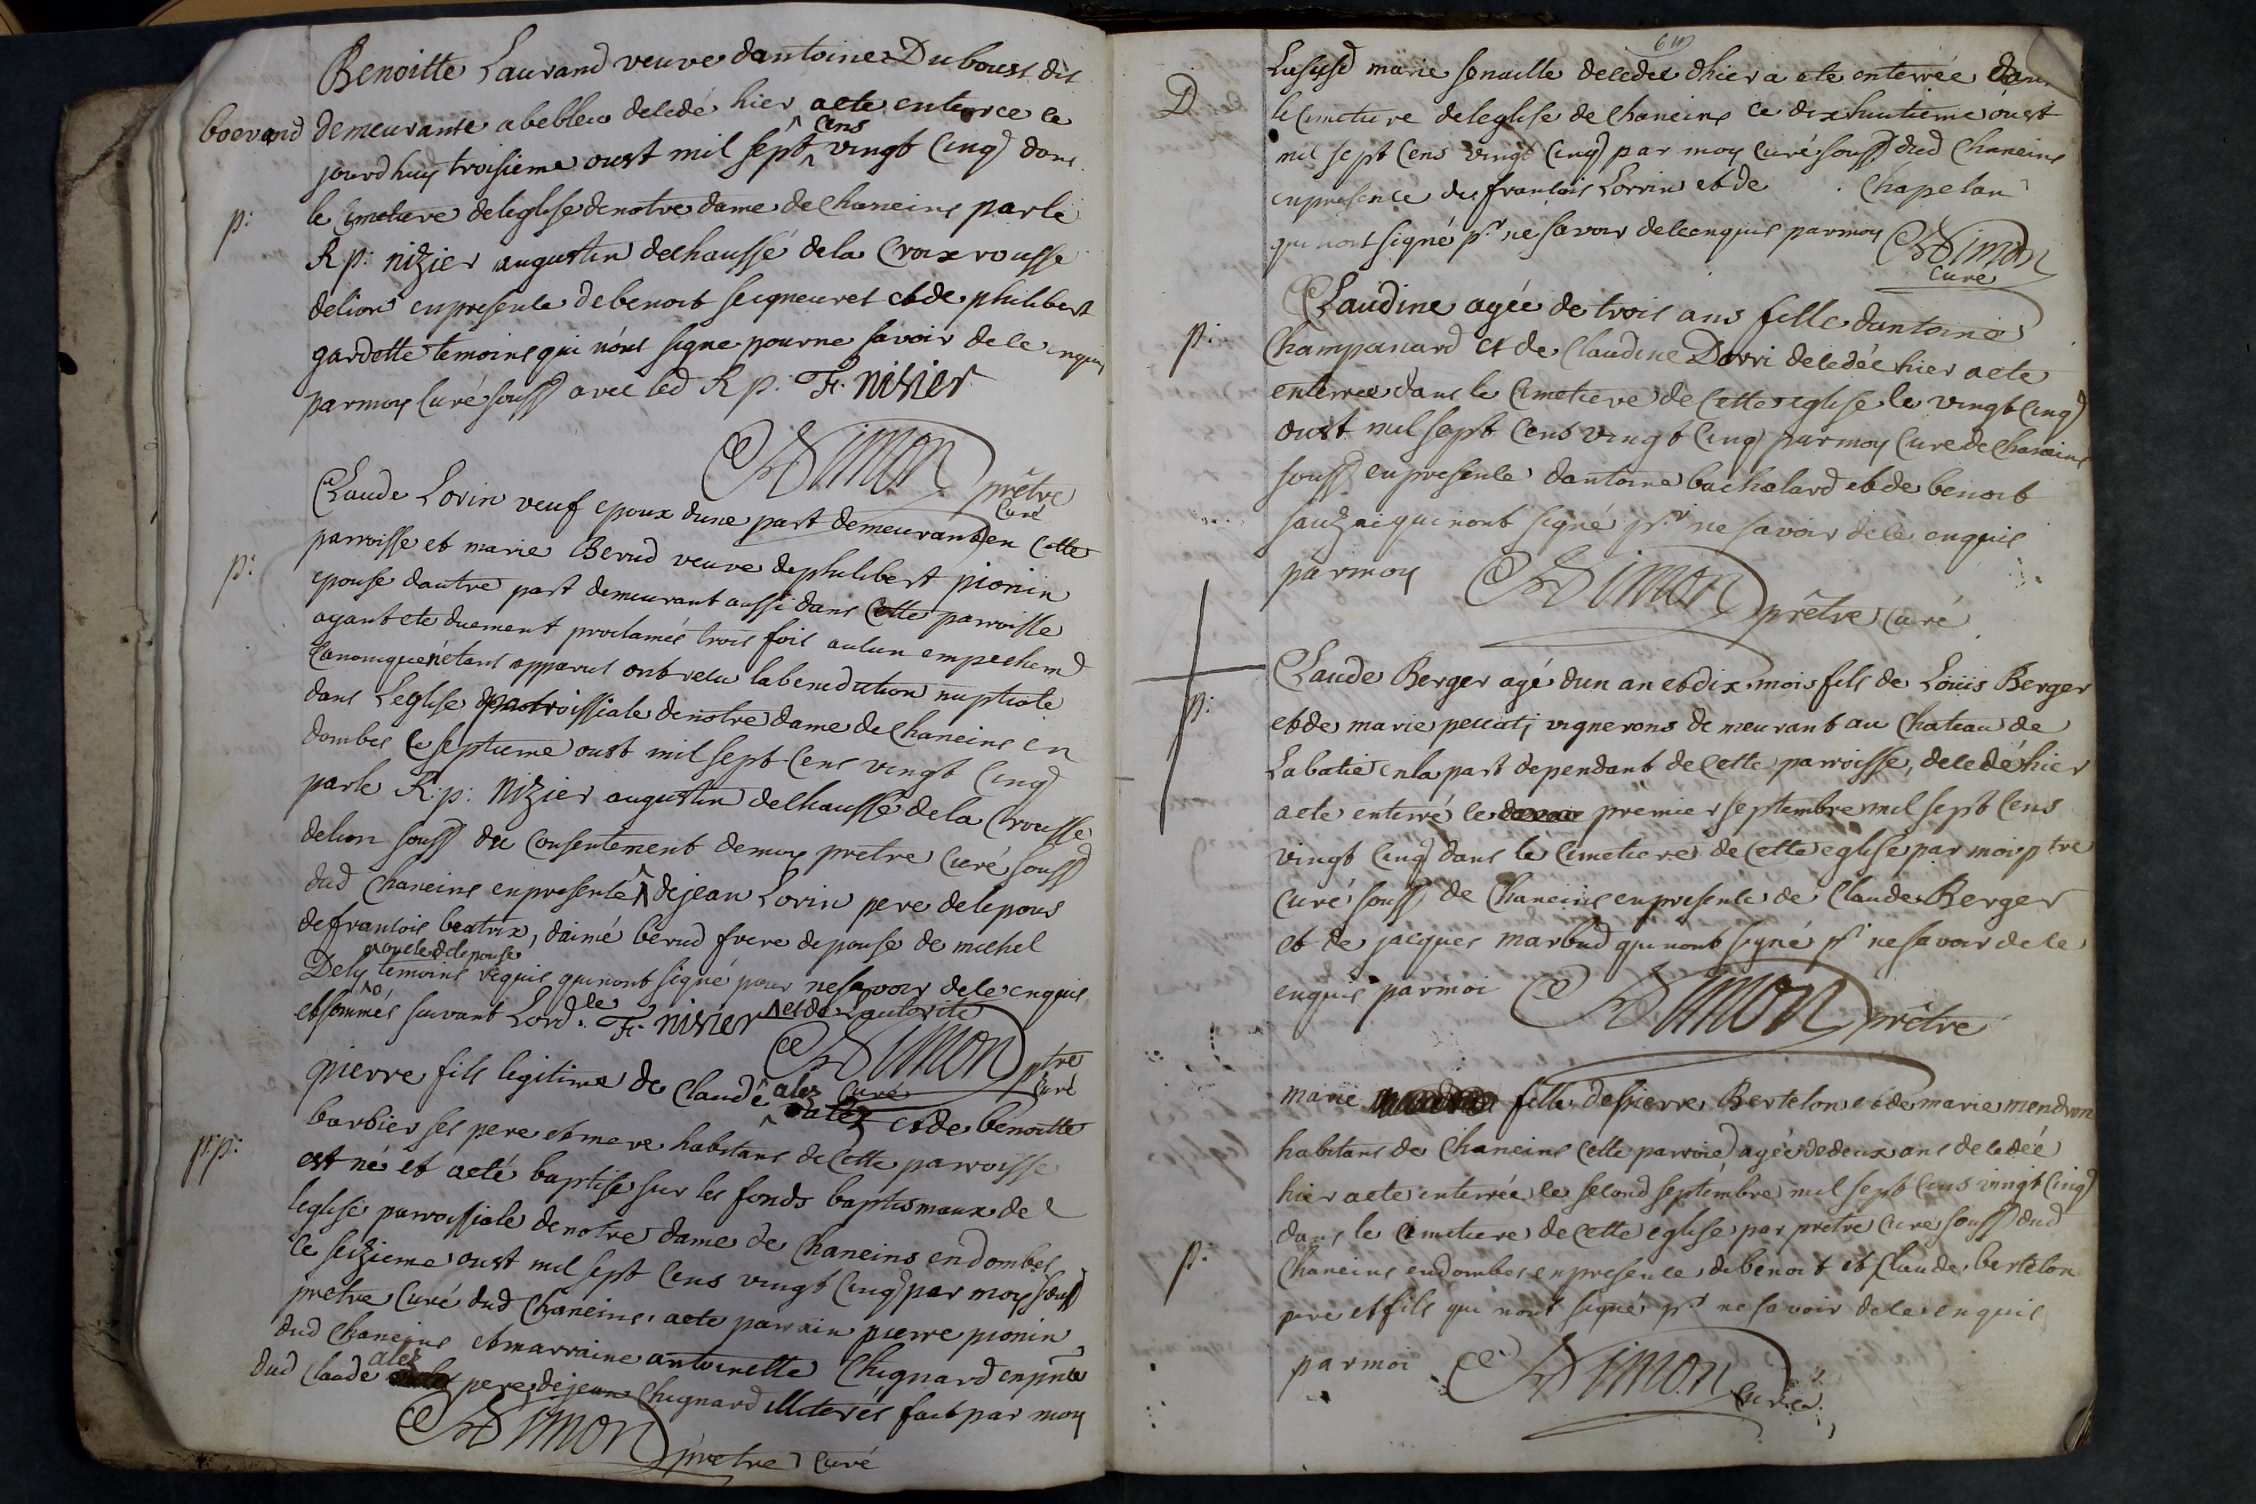 Benoitte Laurand veuve dantoine Duboust dit
boovand demeurante abebleu decedé hier aete enterrée ce
jourdhuy troisieme oust mil sept cens vingt cinq dans
p: le Cimetiere deleglise denotre dame de Chaneins parle
R p: nizier augustin dechaussé dela Croix rousse
delion en presence debenoit seigneuret et de philibert
gardette temoins qui nont signe pour ne savoir dece enquis
parmoy Curé souss avec led R p: F. nizier
Simon prêtre
Curé
Claude Lorin veuf epoux dune part demeurant en Cette
p: parroisse et marie Berud veuve dephilibert pionin
epouse dautre part demeurant aussi dans Cette parroisse
ayant ete duement proclamés trois fois aucun empechemt
Canonique nétant apparus ont recu la benediction nuptiale
dans Leglise parroissiale denotre dame de Chaneins en
dombes Ce septieme oust mil sept Cens vingt Cinq
parle R: p: Nizier augustin dechaussé dela Crousse
delion souss du Consentement demoy pretre Curé souss
dud Chaneins en presence dejean Lorin pere delepous
defrancois beatrix, daimé berud frere depouse de michel
Dely oncle delepouse temoins requis qui nont signé pour ne savoir dece enquis
et sommés suivant Lordce. F. nizier et de Lautorité
Simon ptre
Curé
pierre fils legitime de Claude alez et de benoitte
p:p: barbier ses pere et mere habitans de Cette parroisse
est né et aeté baptisé sur les fonds baptismaux de
leglise parroissiale denotre dame de Chaneins endombes
le seizieme oust mil sept Cens vingt Cinq par moy souss
pretre Curé dud Chaneins, aete parrain pierre pionin
dud Chaneins et marraine antoinette Chignard en pnce
dud Claude alez pere, de jean Chignard illiterés fait par moy
Simon prêtre Curé
marie senaille decedée dhier a ete enterrée dans
D le Cimetiere deleglise de Chaneins ce dixhuitieme oust
mil sept Cens vingt Cinq par moy Curé souss dud Chaneins
en presence de francois Lorrin et de Chapelan
qui nont signé pr ne savoir dece enquis parmoy Simon
Curé
Claudine agée de trois ans fille dantoine
p: Champanard et de Claudine Dorri decedée hier aete
enterrée dans le Cimetiere de Cette eglise le vingt Cinq
oust mil sept Cens vingt Cinq par moy Curé de Chaneins
souss en presence dantoine bachelard et de benoit
sauzai qui nont signé pr ne savoir dece enquis
parmoy Simon prêtre Curé
Claude Berger agé dun an et dix mois fils de Louis Berger
p: et de marie peccati vignerons demeurant au Chateau de
Labatie en la part dependant de Cette parroisse, decedé hier
aete enterré le premier septembre mil sept Cens
vingt Cinq dans le Cimetiere de Cette eglise par moi ptre
Curé souss de Chaneins en presence de Claude Berger
et de jacques marbud qui nont signé pr ne savoir dece
enquis parmoi Simon prêtre
marie fille depierre Bertelon et de marie mendron
habitans de Chaneins Cette parroise agée de deux ans decedée
hier aete enterrée le second septembre mil sept Cens vingt Cinq
dans le Cimetiere de Cette eglise par pretre Curé souss dud
p: Chaneins endombes en presence de benoit et Claude bertelon
pere et fils qui nont signé pr ne savoir dece enquis
parmoi Simon Curé